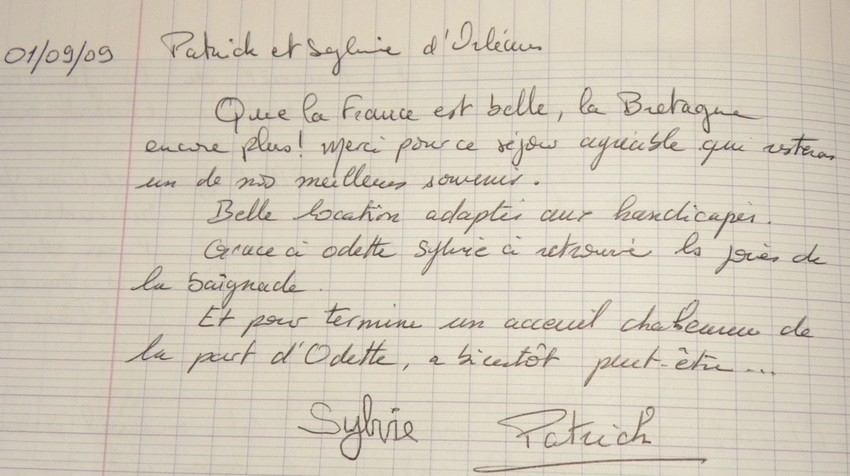 01/09/09 Patrick et Sylvie d'Orléans
Que la France est belle, la Bretagne
encore plus! Merci pour ce séjour agréable qui restera
un de nos meilleurs souvenir.
Belle location adaptés aux handicapés.
Grace à odette Sylvie à retrouvé les joies de
la baignade.
Et pour terminé un acceuil chaleureux de
la part d'Odette, a bientôt peut-être...
Sylvie Patrick